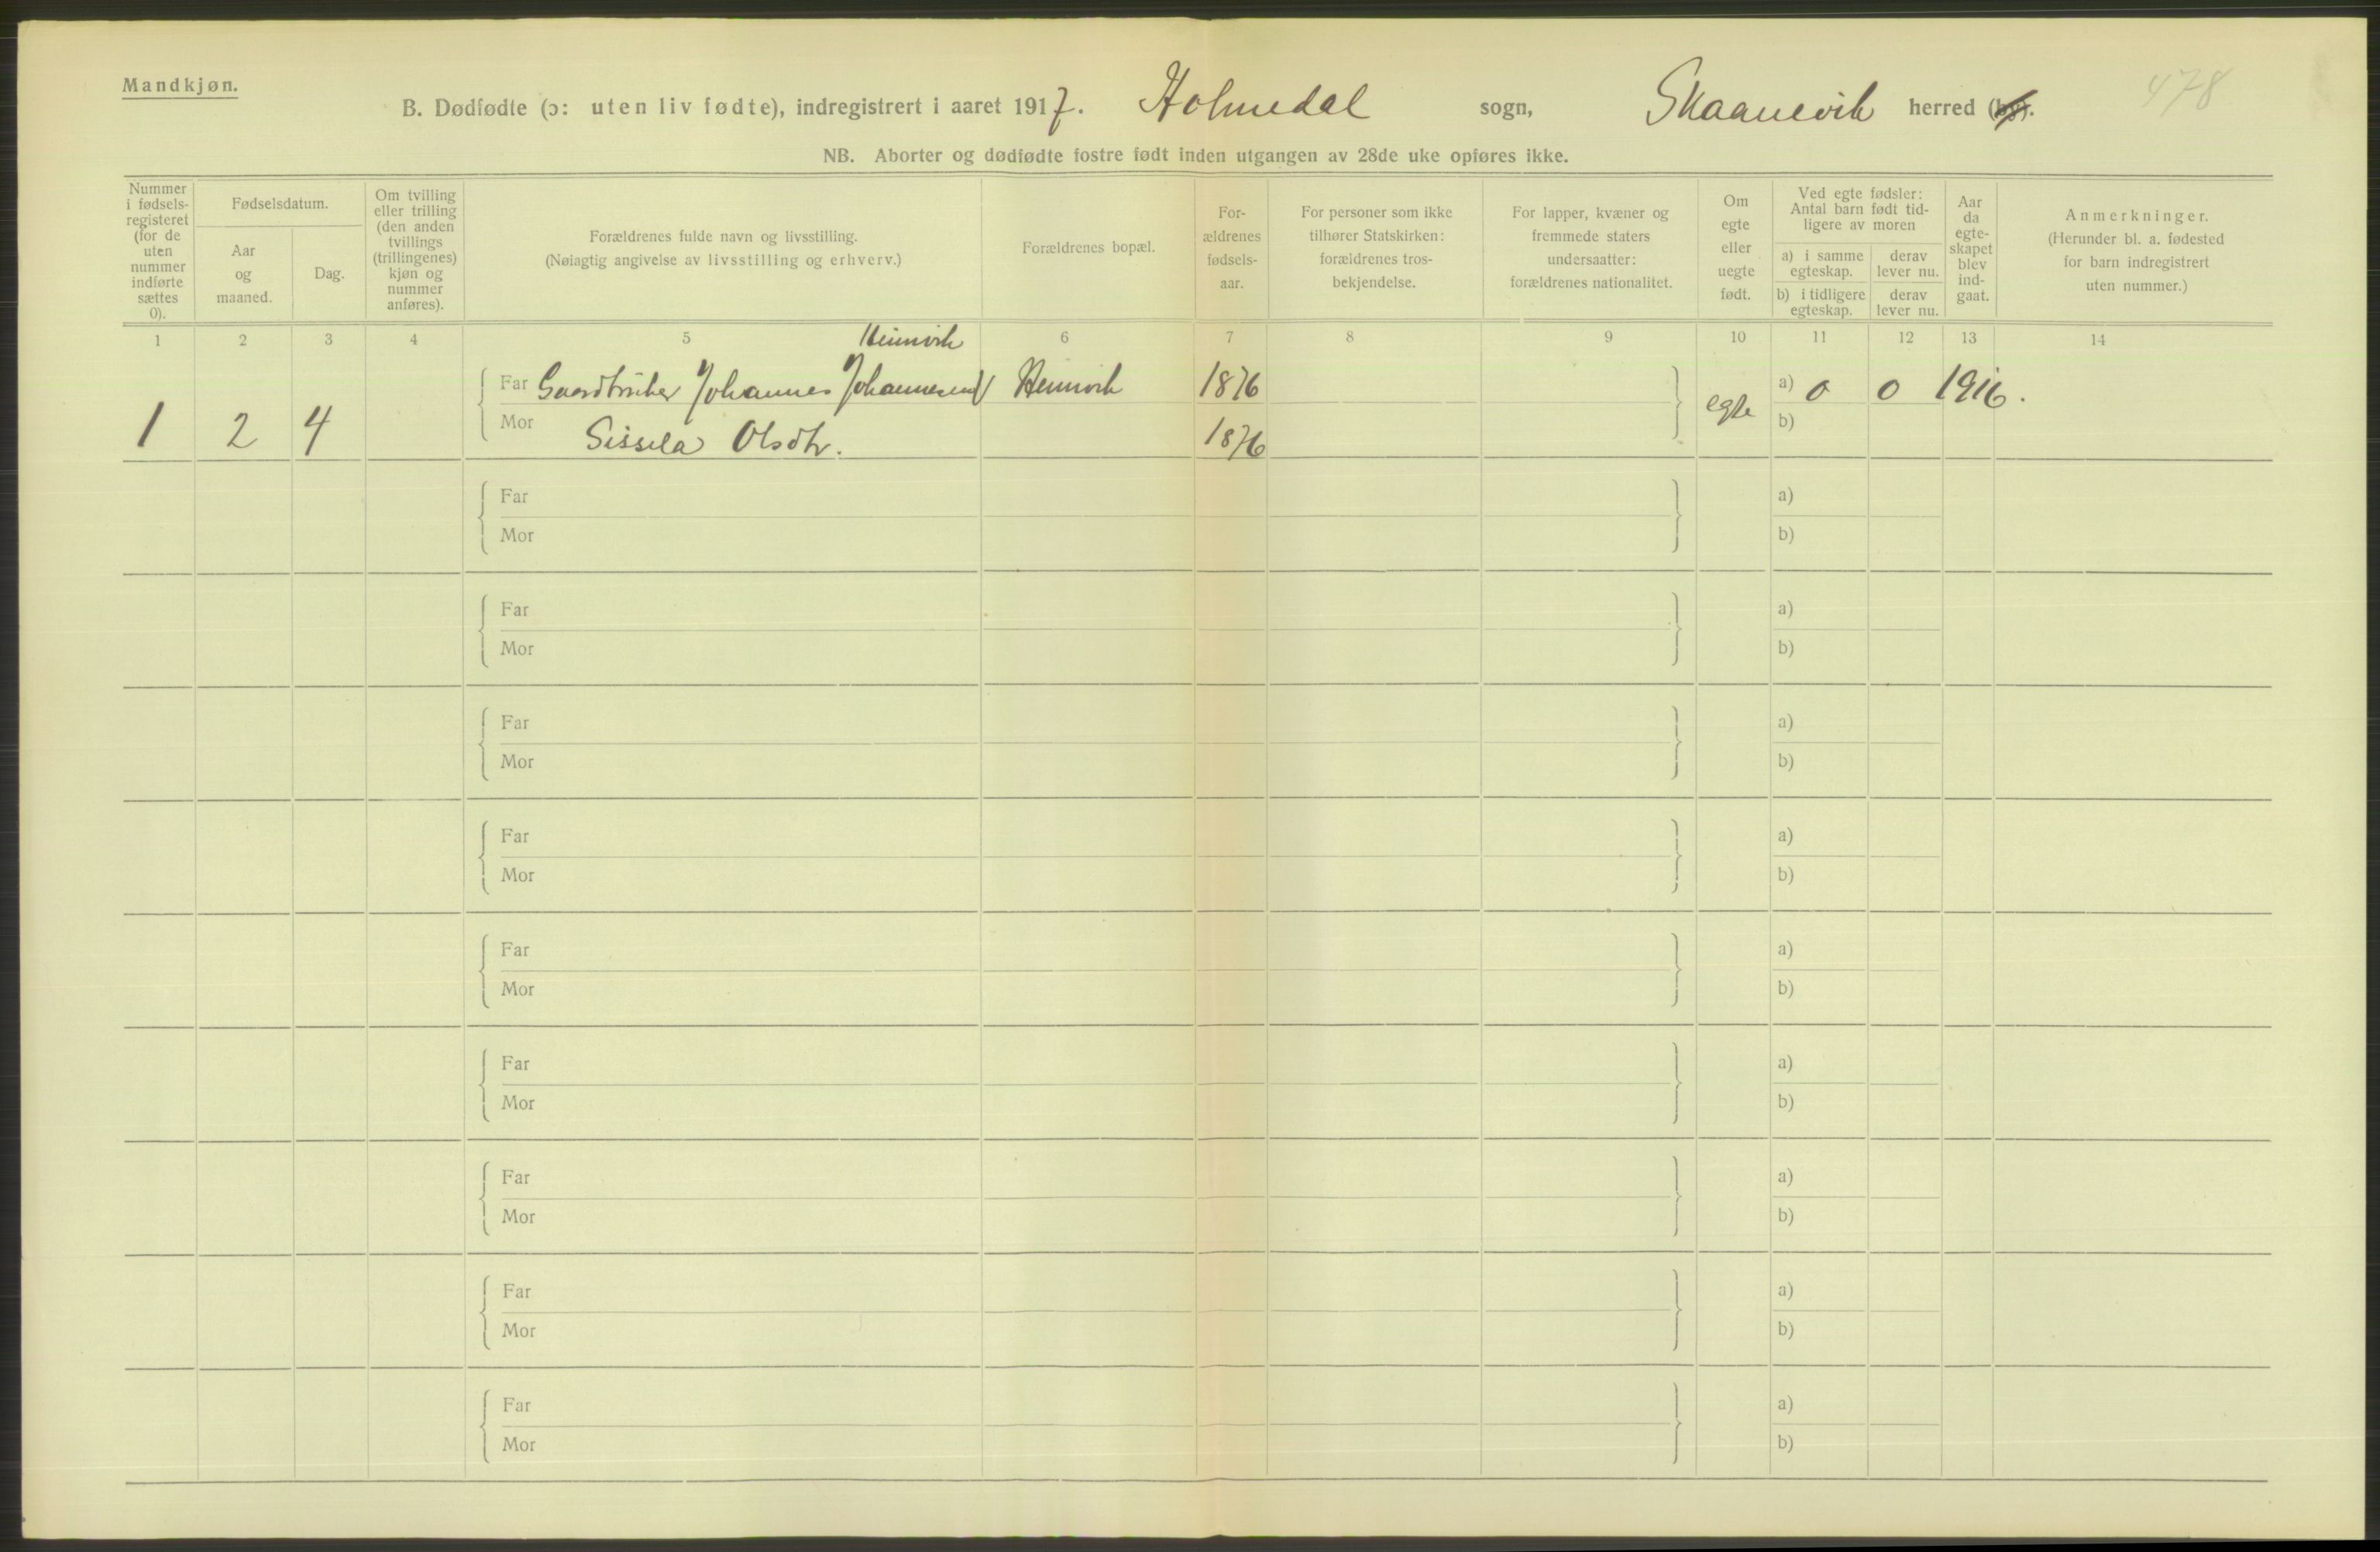 Mandkjøn.
478
B. Dødfødte (ɔ: uten liv fødte), indregistrert i aaret 1917. Holmedal sogn, Skaanevik herred (by).
NB. Aborter og dødfødte fostre født inden utgangen av 28de uke opføres ikke.
Nummer
i fødsels-
registeret
(for de
uten
nummer
indførte
sættes
0).
Fødselsdatum.
Aar
og
maaned.
Dag.
Om tvilling
eller trilling
(den anden
tvillings
(trillingenes)
kjøn og
nummer
anføres).
Forældrenes fulde navn og livsstilling.
(Nøiagtig angivelse av livsstilling og erhverv.)
Forældrenes bopæl.
For-
ældrenes
fødsels-
aar.
For personer som ikke
tilhører Statskirken:
forældrenes tros-
bekjendelse.
For lapper, kvæner og
fremmede staters
undersaatter:
forældrenes nationalitet.
Om
egte
eller
uegte
født.
Ved egte fødsler:
Antal barn født tid-
ligere av moren
a) i samme
egteskap.
derav
lever nu.
b) i tidligere
egteskap.
derav
lever nu.
Aar
da
egte-
skapet
blev
ind-
gaat.
Anmerkninger.
(Herunder bl. a. fødested
for barn indregistrert
uten nummer.)
1 2 3 4 5 6 7 8 9 10 11 12 13 14
Far Gaardbruker Johannes Johannesen 1876 a) 0 0 1916.
1 2 4 egte
Mor Sissela Olsdtr. 1876 b)
Far a)
Mor b)
Far a)
Mor b)
Far a)
Mor b)
Far a)
Mor b)
Far a)
Mor b)
Far a)
Mor b)
Far a)
Mor b)
Far a)
Mor b)
Far a)
Mor b)